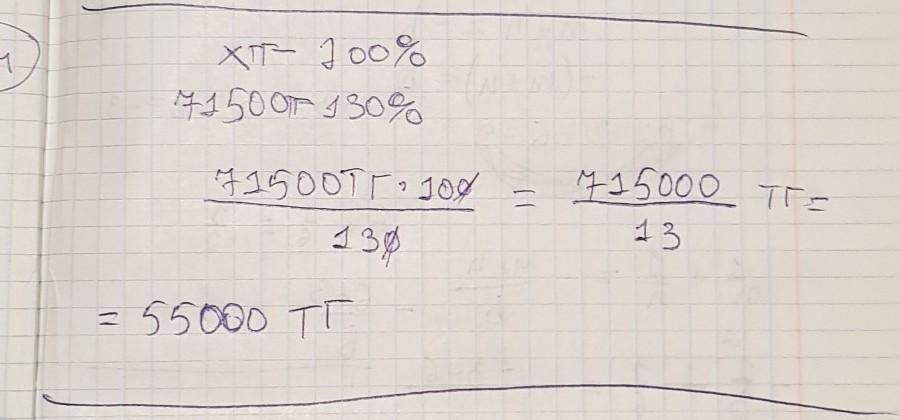 1
хт- 100%
71500т- 130%
71500тг · 100 / 130 = 715000 / 13 тг =
= 55000 тг